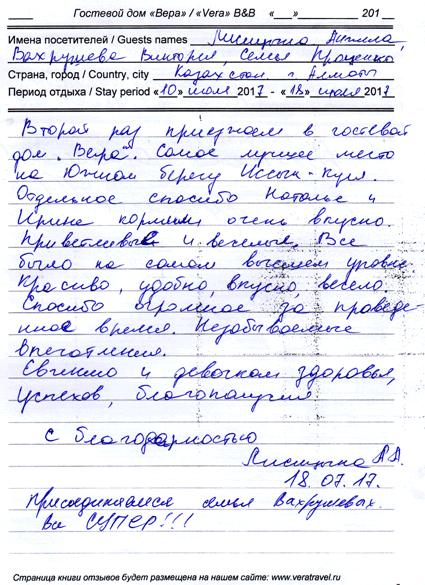 Гостевой дом «Вера» / «Vera» B&B «___»__________ 201__
Имена посетителей / Guests names Лисицына Антонина,
Вахрушева Виктория, Семья Проценко
Страна, город / Country, city Казахстан г. Алматы
Период отдыха / Stay period «10» июля 2017 - «18» июля 2017
Второй раз приезжаем в гостевой
дом "Вера". Самое лучшее место
на Южном берегу Иссык-Куля.
Отдельное спасибо Наталье и
Ирине кормили очень вкусно.
Приветливые и веселые. Все
было на самом высшем уровне.
Красиво, удобно, вкусно, весело.
Спасибо огромное за проведе-
нное время. Незабываемые
впечатления.
Евгению и девочкам здоровья,
успехов, благополучия
С благодарностью
Лисицына А.А.
18.07.17.
Присоединяемся семья Вахрушевых.
Все СУПЕР!!!
Страница книги отзывов будет размещена на нашем сайте: www.veratravel.ru